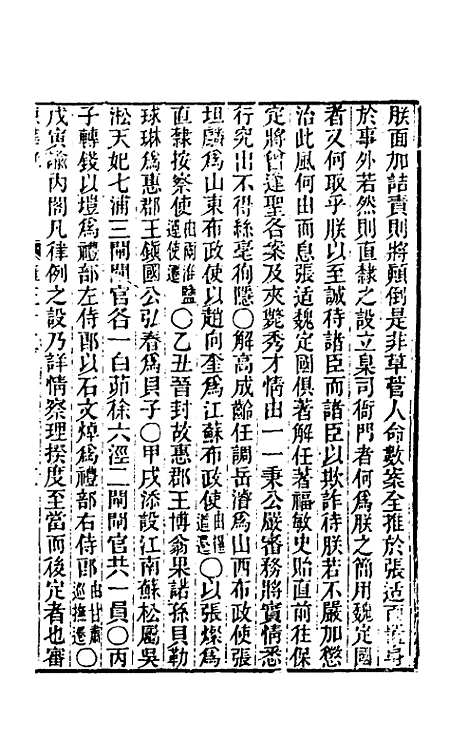 朕面加詰責則將顛倒是非草菅人命數案全推於張适而置身
於事外若然則直隸之設立臬司衙門者何爲朕之簡用魏定國
者又何取乎朕以至誠待諸臣而諸臣以欺詐待朕若不嚴加懲
治此風何由而息張适魏定國俱著解任著福敏史貽直前往保
定將曾逹聖各案及夾斃秀才情由一一秉公嚴審務將實情悉
行究出不得絲毫徇隱〇解高成齡任調岳濬爲山西布政使張
坦麟爲山東布政使以趙向奎爲江蘇布政使由糧道遷〇以張燦爲
直隸按察使由兩淮鹽運使遷〇乙丑晉封故惠郡王博翁果諾孫貝勒
球琳爲惠郡王鎮國公弘春爲貝子〇甲戌添設江南蘇松屬吳
淞天妃七浦三閘閘官各一白茆徐六涇二閘閘官共一員〇丙
子轉錢以塏爲禮部左侍郎以石文焯爲禮部右侍郎由甘肅巡撫遷〇
戊寅諭內閣凡律例之設乃詳情察理揆度至當而後定者也審